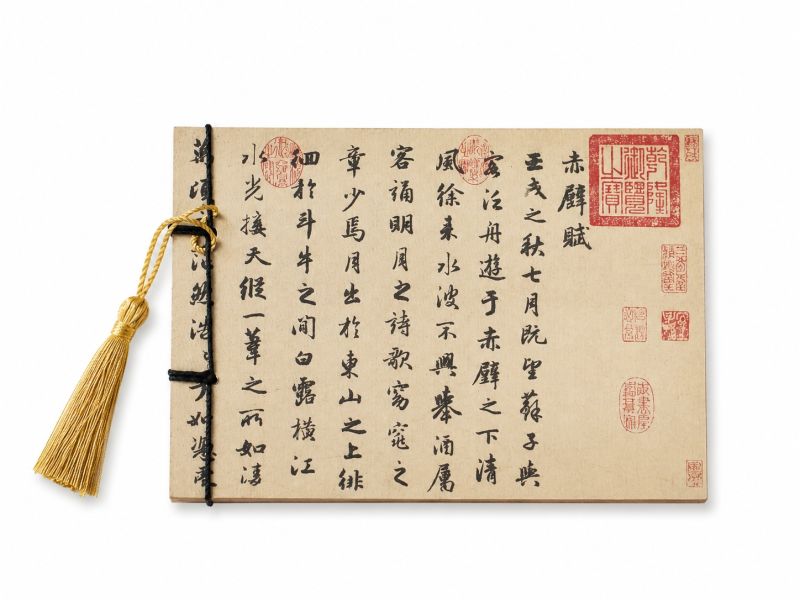 乾隆御覽之寶
赤壁賦
壬戌之秋七月既望蘇子與
客泛舟遊于赤壁之下清
風徐來水波不興舉酒屬
客誦明月之詩歌窈窕之
章少焉月出於東山之上徘
徊於斗牛之間白露橫江
水光接天縱一葦之所如凌
萬頃茫然浩浩乎如馮虛